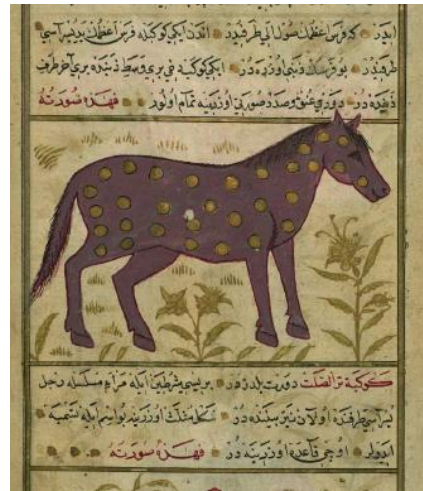 ايدر كه فرس اعظمك صول الى طرفيدر اندن ايكى كوكبه فرس اعظمك يديسراسى
طرفيدر بو فرسك ذنبى اوزره در ايكى كوكبه نك برى وسط ذنبده برى آخر طرف
ذنبده در دوردى عنق و صدر صورتى اوزرينه تمام اولور فهذه صورته
كوكبة المثلث دورت يلدزدر بريسى شرطين ايله مراة مسلسله رجل
يسراسى طرفنده اولان نير بيننده در شكل مثلث اوزرينه بو اسم ايله تسميه
ايدرلر اوجى قاعده اوزرينه در فهذه صورته